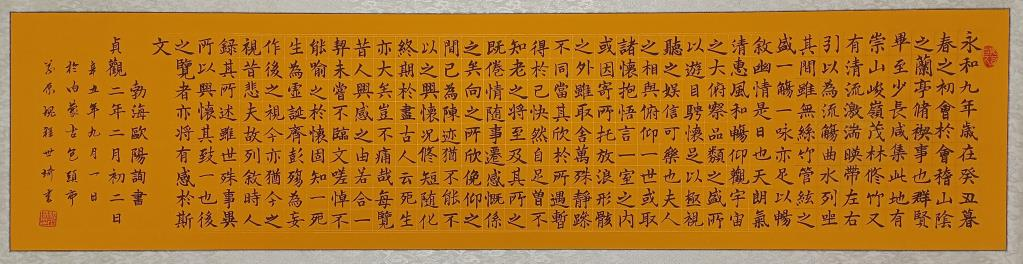 永和九年歲在癸丑暮
春之初會於會稽山陰
之蘭亭脩稧事也群賢
畢至少長咸集此地有
崇山峻嶺茂林脩竹又
有清流激湍暎帶左右
引以為流觴曲水列坐
其間雖無絲竹管絃之
盛一觴一咏亦足以暢
敘幽情是日也天朗氣
清惠風和暢仰觀宇宙
之大俯察品類之盛所
以遊目騁懷足以極視
聽之娱信可樂也夫人
之相與俯仰一世或取
諸懷抱悟言一室之内
或因寄所托放浪形骸
之外雖取舍萬殊靜躁
不同當其欣於所遇暫
得於己快然自足曾不
知老之將至及其所之
既倦情随事遷感慨係
之矣向之所欣俛仰之
間已為陳迹猶不能不
以之興懷況脩短随化
終期於盡古人云死生
亦大矣豈不痛哉每覽
昔人興感之由若合一
契未嘗不臨文嗟悼不
能喻之於懷固知一死
生為虚誕齊彭殤為妄
作後之視今亦猶今之
視昔悲夫故列敘時人
録其所述雖世殊事異
所以興懷其致一也後
之覽者亦將有感於斯
文
勃海歐陽詢書
貞觀二年二月初二日
辛丑年九月一日
於内蒙古包頭市
世琦書